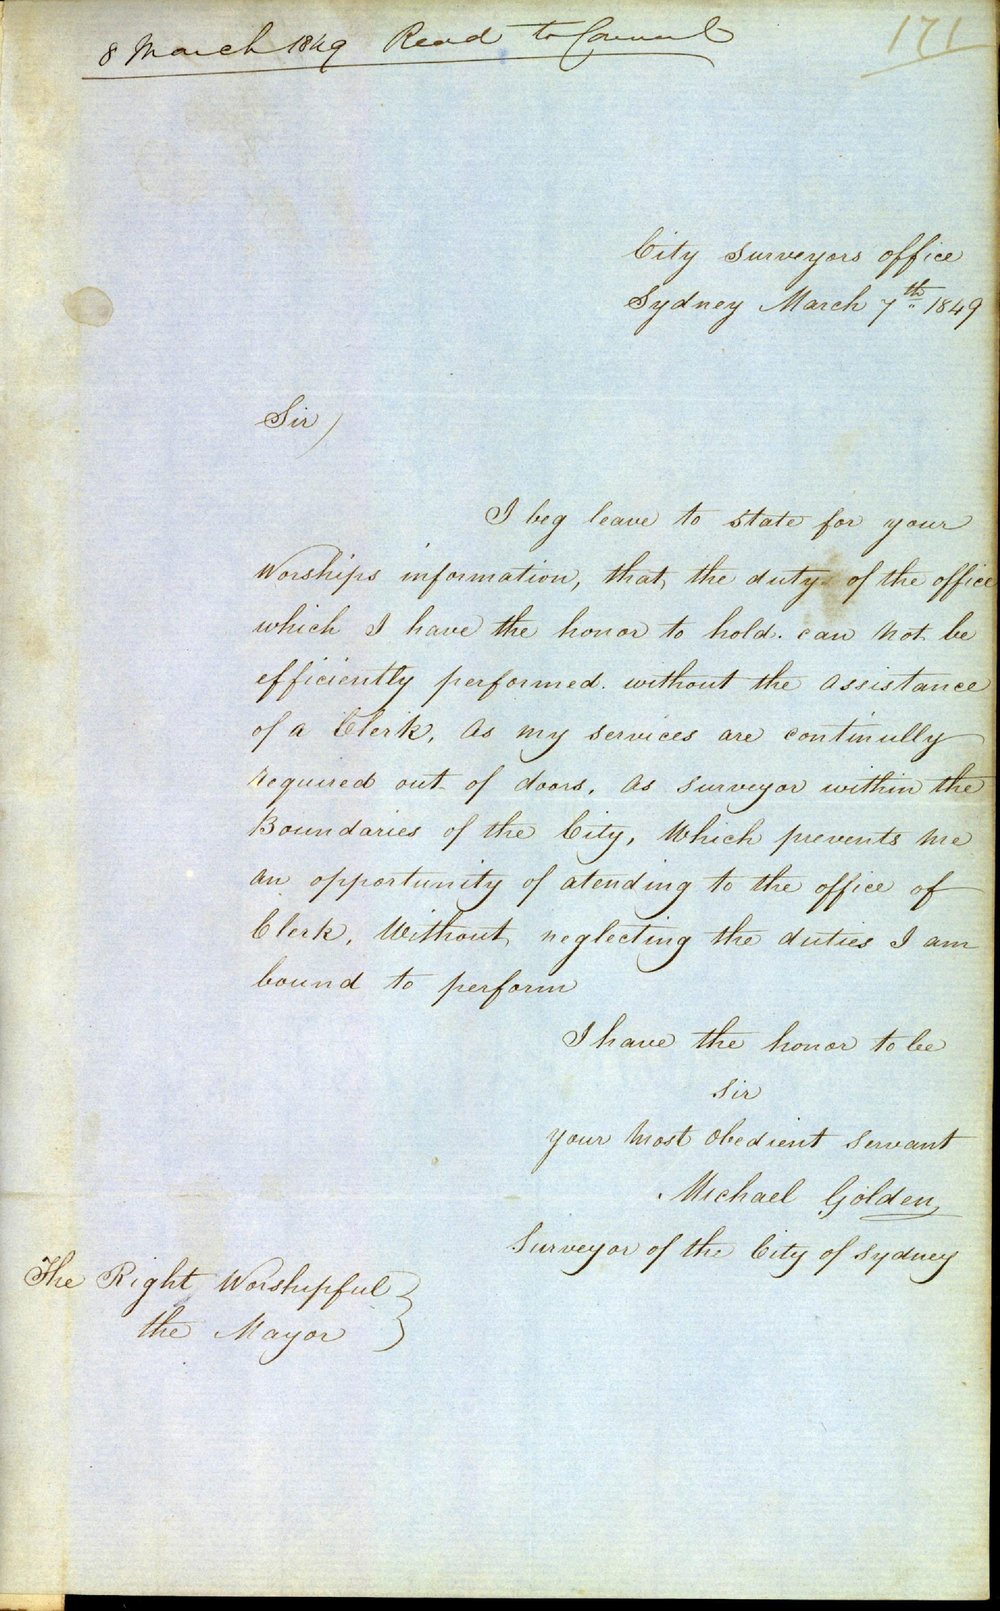 8 March 1849 Read to Council
171
City Surveyors office
Sydney March 7th 1849
Sir
I beg leave to state for your
Worships information, that, the duty of the office
which I have the honor to hold. can not be
efficiently performed. without the assistance
of a Clerk, As my services are continully
required out of doors, As surveyor within the
Boundaries of the City, Which prevents me
an opportunity of atending to the office of
Clerk, Without, neglecting the duties I am
bound to perform
I have the honor to be
Sir
your most obedient servant
Michael Golden,
Surveyor of the City of Sydney
The Right Worshipful
the Mayor